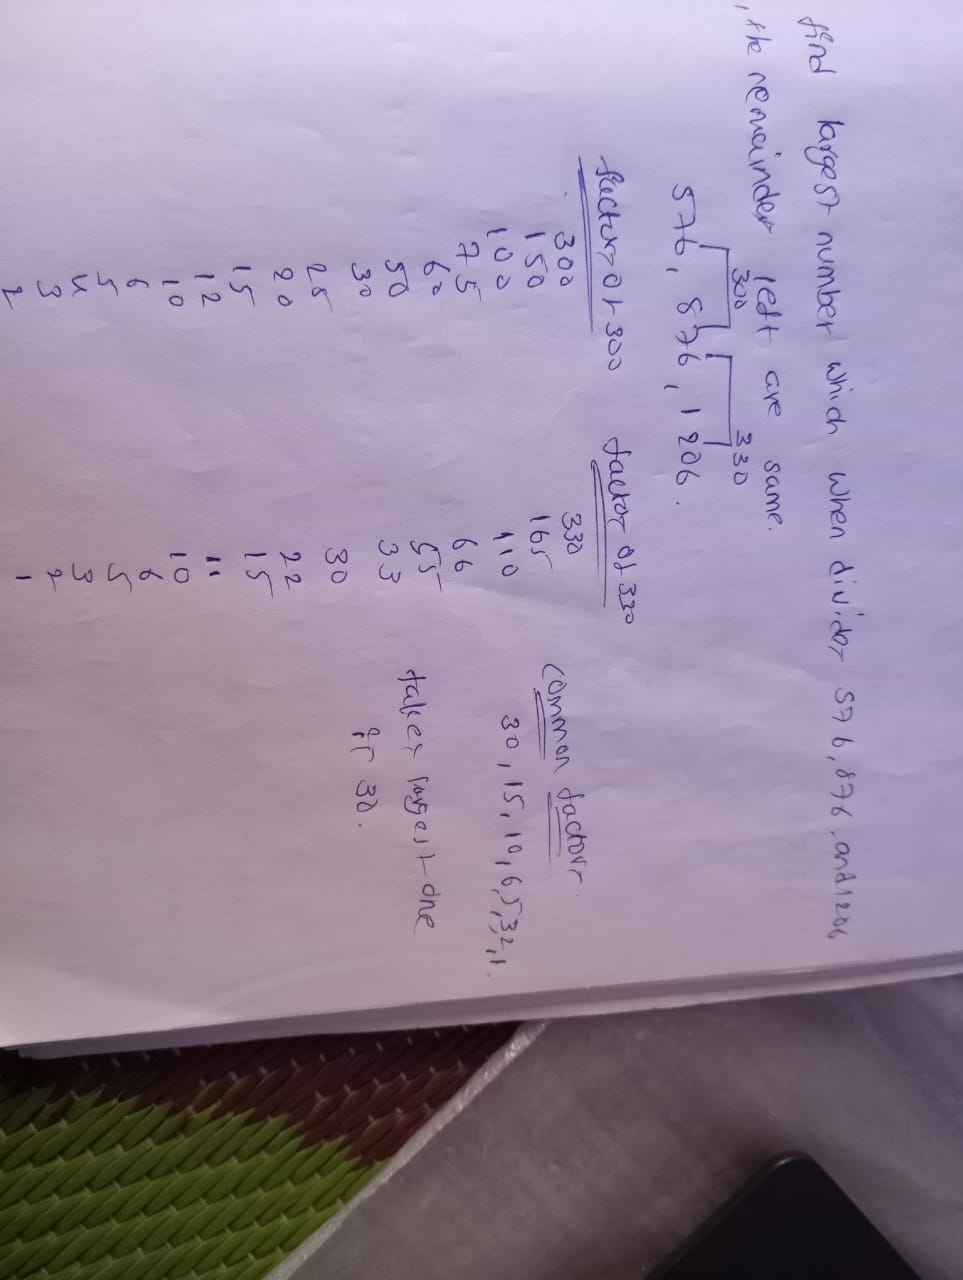 find largest number which when divider 576, 876, and 1206
, the remainder left are same.
300 330
576, 876, 1206.
factor of 300
300
150
100
75
60
50
30
25
20
15
12
10
6
5
4
3
2
factor of 330
330
165
110
66
55
33
30
22
15
11
10
6
5
3
2
1
common factorr.
30, 15, 10, 6, 5, 3, 2, 1.
taker largest one
30.